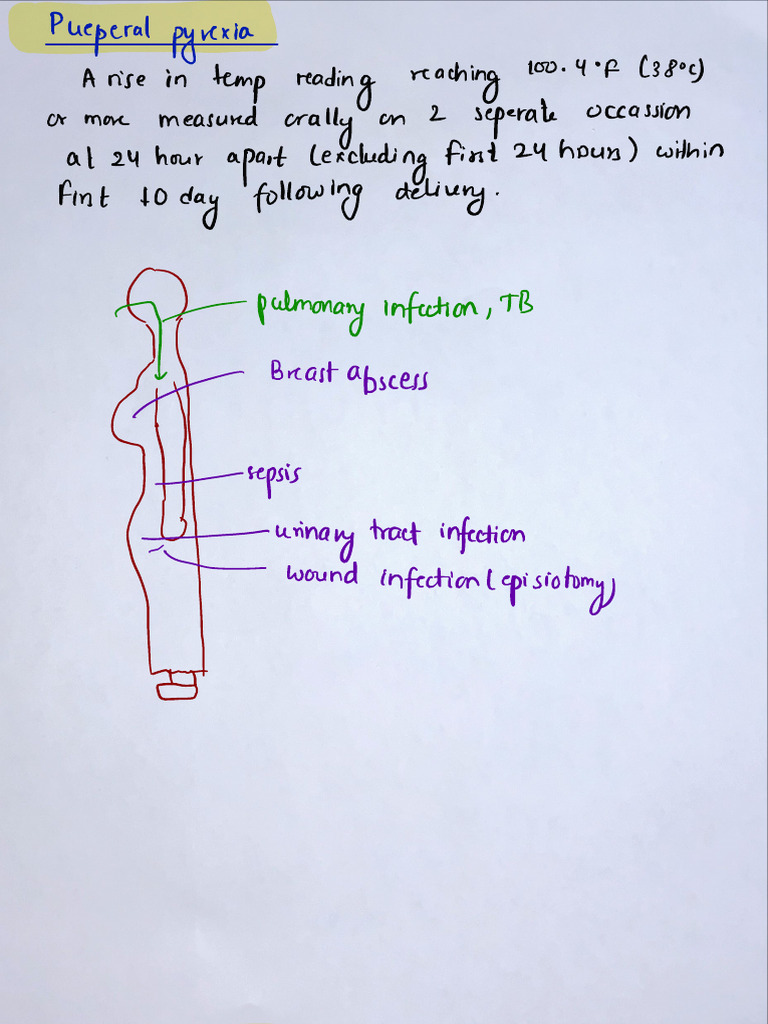 Pueperal pyrexia
A rise in temp reading reaching 100.4°F (38°c)
or more measured orally on 2 seperate occassion
at 24 hour apart (excluding first 24 hours) within
first 10 day following delivery.
pulmonary infection, TB
Breast abscess
sepsis
urinary tract infection
wound infection (episiotomy)